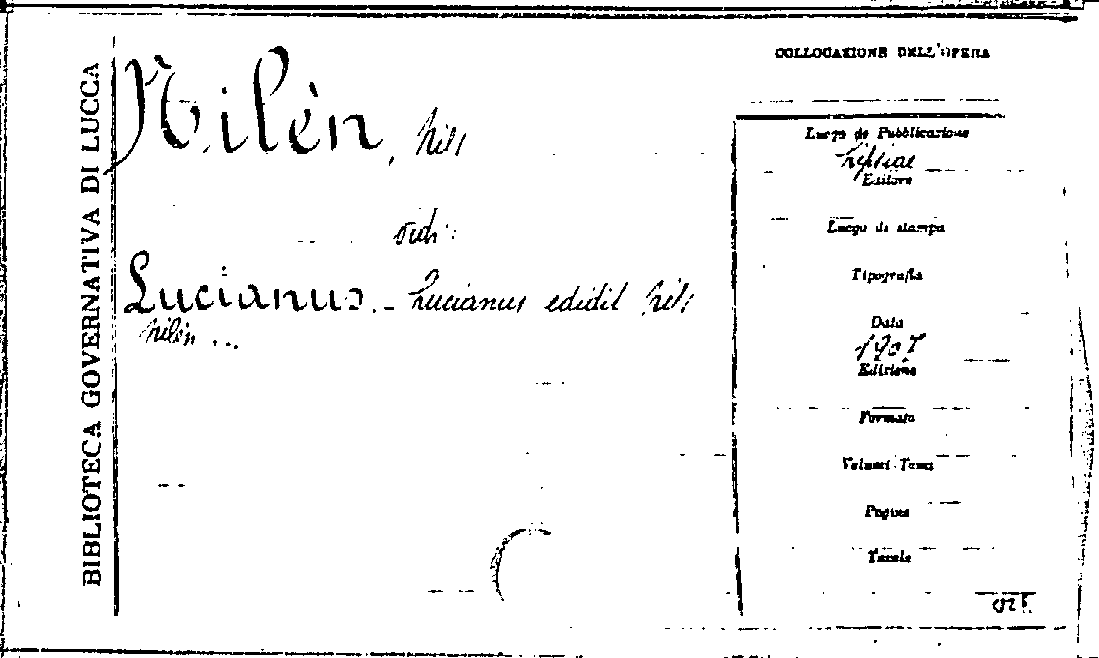 BIBLIOTECA GOVERNATIVA DI LUCCA
Nilèn, Nils
vedi:
Lucianus. - Lucianus edidit Nils
Nilèn ...
COLLOCAZIONE DELL'OPERA
Luogo de Pubblicazione
Lipsiae
Editore
Luogo di stampa
Tipografia
Data
1907
Edizione
Formato
Volumi-Tomi
Pagine
Tavole